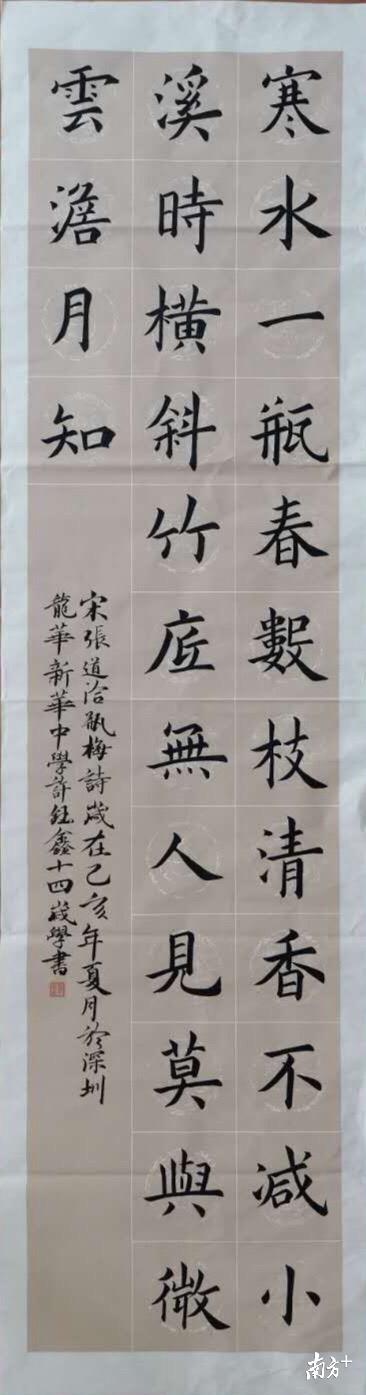 寒水一瓶春數枝清香不減小
溪時橫斜竹底無人見莫與微
雲澹月知
宋張道洽瓶梅詩歲在己亥年夏月於深圳
龍華新華中學許鈺鑫十四歲學書
南方+